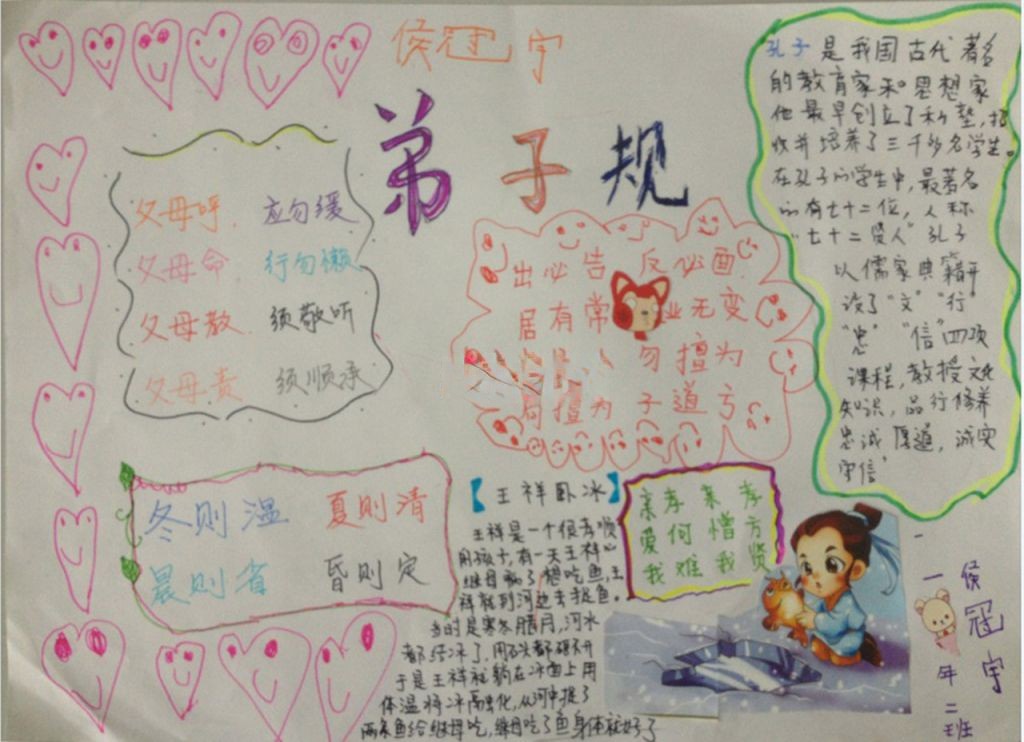 侯冠宇
弟子规
父母呼 应勿缓
父母命 行勿懒
父母教 须敬听
父母责 须顺承
出必告 反必面
居有常 业无变
勿擅为
擅为 子道亏
孔子是我国古代著名
的教育家和思想家
他最早创立了私塾,招
收并培养了三千多名学生。
在孔子的学生中,最著名
的有七十二位,人称
“七十二贤人”孔子
以儒家典籍开
设了“文”“行”
“忠”“信”四项
课程,教授文化
知识,品行修养
忠诚厚道,诚实
守信
冬则温 夏则清
晨则省 昏则定
【王祥卧冰】
王祥是一个很孝顺
的孩子,有一天王祥的
继母病了想吃鱼,王
祥就到河边去捉鱼。
当时是寒冬腊月,河水
都结冰了,用石头都砸不开
于是王祥就躺在冰面上用
体温将冰融化,从河中捉了
两条鱼给继母吃,继母吃了鱼身体就好了
亲孝亲孝
爱何憎方
我难我贤
侯冠宇
一年二班